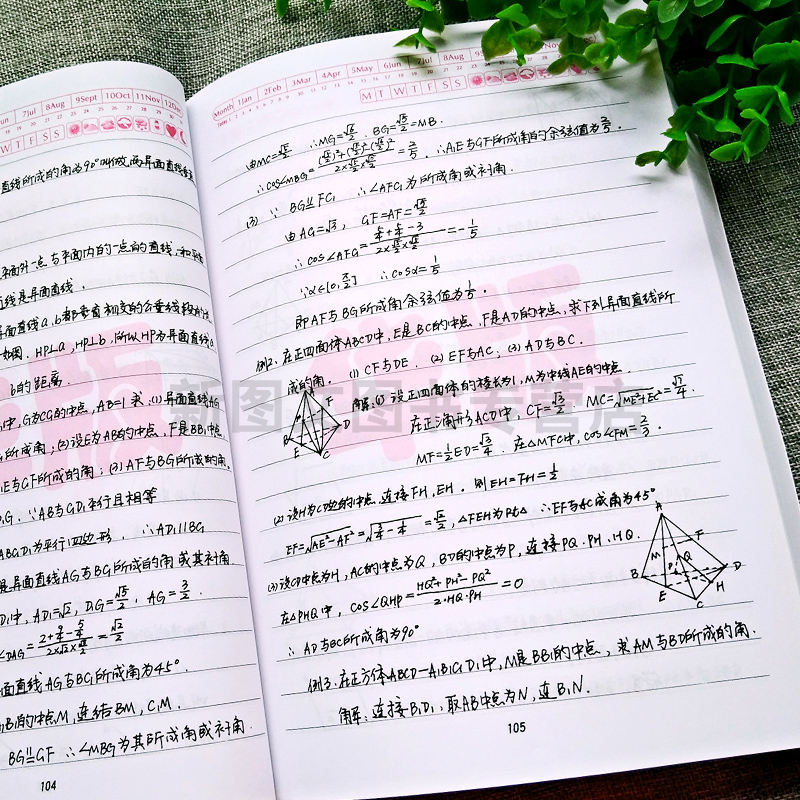 7Jul 8Aug 9Sept 10Oct 11Nov 12Dec
W T F S S
直线所成的角为90°叫做两异面直线垂直
平面外一点与平面内的一点的直线,和平面
直线是异面直线.
异面直线a,b都垂直相交的公垂线段的长
如图. HP⊥a, HP⊥b, 所以HP为异面直线a,
b的距离.
中, G为CG的中点, AB=1 求:(1)异面直线AG
所成角;(2)设E为AB的中点, F是BB1中点,
A1E与GF所成的角;(3)AF与BG所成的角.
D1G. ∵AB与GD1平行且相等
ABGD1为平行四边形. ∴AD1∥BG
是异面直线AG与BG所成的角或其补角.
D1中, AD1=√2, D1G=√5/2, AG=3/2.
∠DAG=(2+9/4-5/4)/(2×√2×3/2)=√2/2
面直线AG与BC1所成角为45°.
B1的中点M, 连结BM, C1M.
BG∥GF ∴∠MBG为其所成角或补角.
104
Month 1Jan 2Feb 3Mar 4Apr 5May 6Jun 7Jul 8Aug 9Sept
M T W T F S S
由MC=√5/2 ∴MG=√6/2. BG=√5/2=MB.
∴cos∠MBG= =2/5. ∴A1E与GF所成角的余弦值为2/5.
(3) ∵ BG∥FC1 ∴∠AFC1为所成角或补角.
由AG=√3, GF=AF=√5/2
∴cos∠AFG=(5/4+5/4-3)/(2×√5/2×√5/2)=-1/5
∵α∈(0, π/2] ∴cosα=1/5
即AF与BG所成角余弦值为1/5.
例2. 在正四面体ABCD中, E是BC的中点, F是AD的中点, 求下列异面直线所
成的角. (1) CF与DE. (2) EF与AC; (3) AD与BC.
A
F
B
D
E
C
解:(1) 设正四面体的棱长为1, M为中线AE的中点.
在正三角形ACD中, CF=√3/2. MC=√ME²+EC²=√7/4.
MF=1/2ED=√3/4. 在△MFC中, cos∠CFM=2/3.
(2) 设H为CD边的中点 连接FH, EH. 则EH=FH=1/2
EF=√AE²-AF²=√3/4-1/4=√2/2, △FEH为Rt△ ∴EF与AC成角为45°
(3) 设CD中点为H, AC的中点为Q, BD的中点为P, 连接PQ. PH. HQ.
在△PHQ中, cos∠QHP=(HQ²+PH²-PQ²)/(2·HQ·PH)=0
∴AD与BC所成角为90°
A
F
M
Q
P
B
D
E
H
C
例3. 在正方体ABCD-A1B1C1D1中, M是BB1的中点, 求AM与BD所成的角.
解:连接B1D1, 取AB中点为N, 连B1N.
105